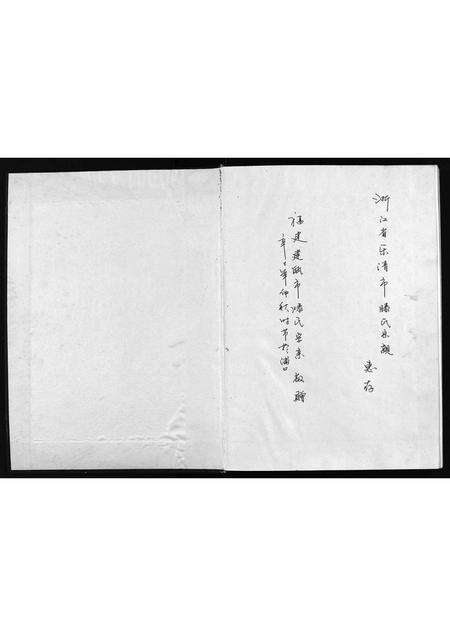 浙江省乐清市滕氏宗親
惠存
福建建瓯市滕氏宗亲 敬赠
辛巳年仲秋时节於浦口